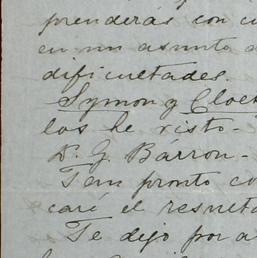 prenderás con cu
en un asunto d
dificultades.
Symon y Cloet
los he visto-
D. J. Bárron-
Tan pronto co
caré el resulta
Te dejo por a